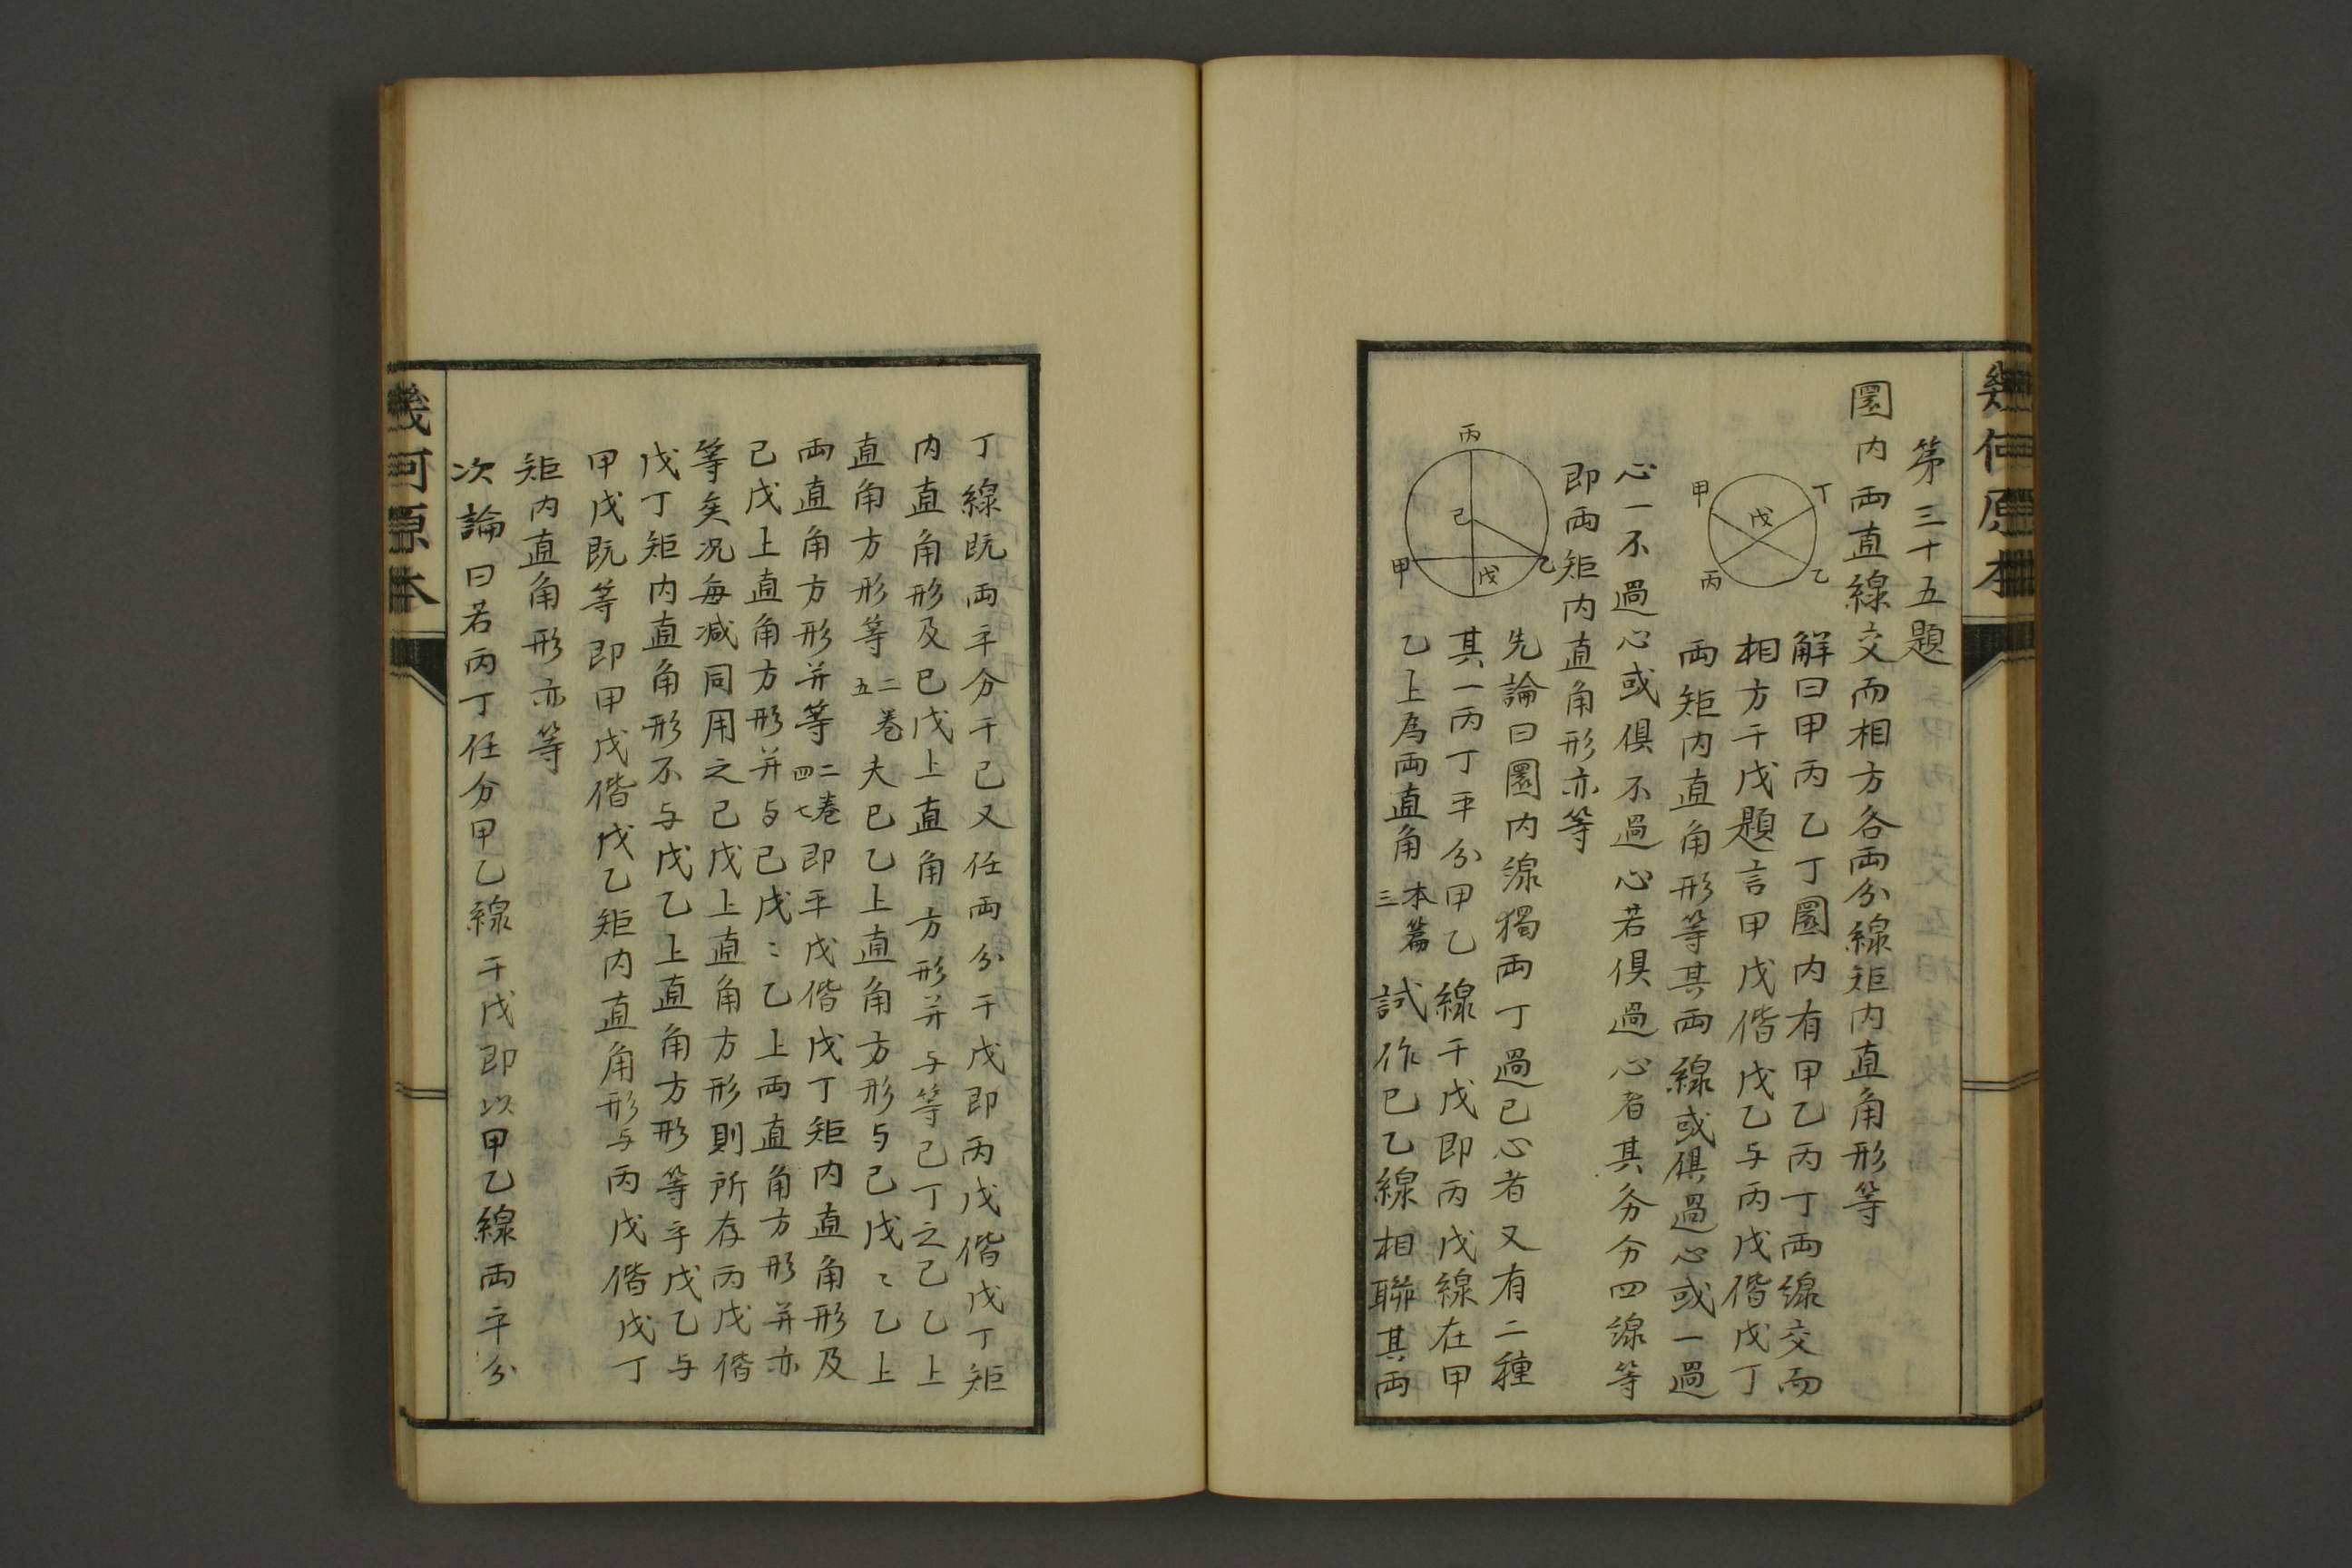 幾何原本
第三十五題
圜内両直線交而相方各両分線矩内直角形等
丁
甲
戊
丙
乙
解曰甲丙乙丁圜内有甲乙丙丁両線交而
相方于戊題言甲戊偕戊乙与丙戊偕戊丁
両矩内直角形等其両線或俱過心或一過
心一不過心或俱不過心若俱過心者其夯分四線等
即両矩内直角形亦等
丙
己
甲
戊
乙
先論曰圜内線獨両丁過己心者又有二種
其一丙丁平分甲乙線于戊即丙戊線在甲
乙上為両直角本篇三試作己乙線相聯其両
丁線既両平分于己又任両分于戊即丙戊偕戊丁矩
内直角形及己戊上直角方形并与等己丁之己乙上
直角方形等二卷五夫己乙上直角方形与己戊〻乙上
両直角方形并等二卷四七即平戊偕戊丁矩内直角形及
己戊上直角方形并与己戊〻乙上両直角方形并亦
等矣况每减同用之己戊上直角方形則所存丙戊偕
戊丁矩内直角形不与戊乙上直角方形等乎戊乙与
甲戊既等即甲戊偕戊乙矩内直角形与丙戊偕戊丁
矩内直角形亦等
次論曰若丙丁任分甲乙線于戊即以甲乙線両平分
幾何原本